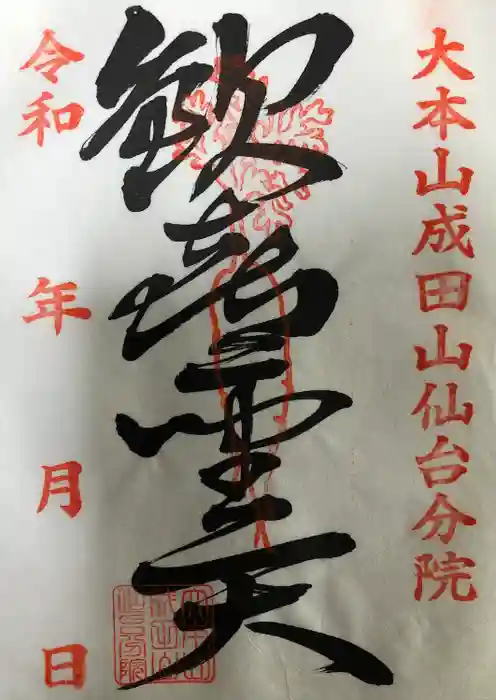 大本山成田山仙台分院
歓喜聖天
令和 年 月 日